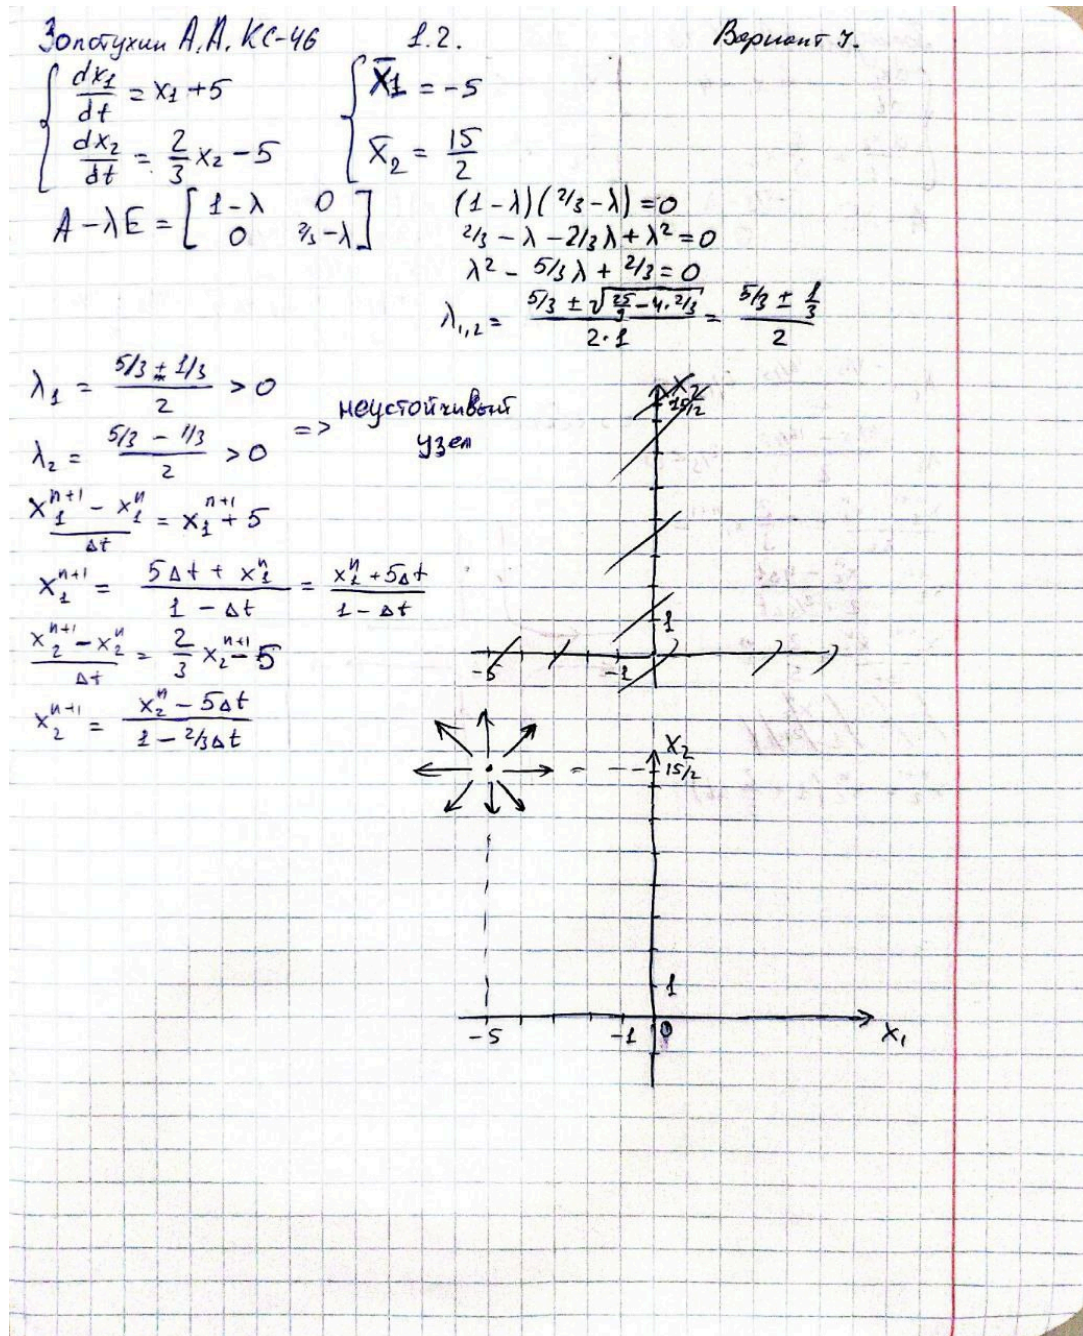 Золотухин А.А. КС-46 1.2. Вариант 7.
{ dx₁/dt = x₁ + 5 { x̄₁ = -5
{ dx₂/dt = 2/3 x₂ - 5 { x̄₂ = 15/2
A - λE = [ 1-λ 0 ; 0 2/3-λ ] (1-λ)(2/3-λ) = 0
2/3 - λ - 2/3λ + λ² = 0
λ² - 5/3λ + 2/3 = 0
λ₁,₂ = (5/3 ± √(25/9 - 4·2/3))/(2·1) = (5/3 ± 1/3)/2
λ₁ = (5/3 ± 1/3)/2 > 0
λ₂ = (5/3 - 1/3)/2 > 0 => неустойчивый узел
(x₁ⁿ⁺¹ - x₁ⁿ)/Δt = x₁ⁿ⁺¹ + 5
x₁ⁿ⁺¹ = (5Δt + x₁ⁿ)/(1 - Δt) = (x₁ⁿ + 5Δt)/(1 - Δt)
(x₂ⁿ⁺¹ - x₂ⁿ)/Δt = 2/3 x₂ⁿ⁺¹ - 5
x₂ⁿ⁺¹ = (x₂ⁿ - 5Δt)/(1 - 2/3Δt)
x₂
15/2
1
-5 -1
x₂
15/2
1
-5 -1 0 x₁